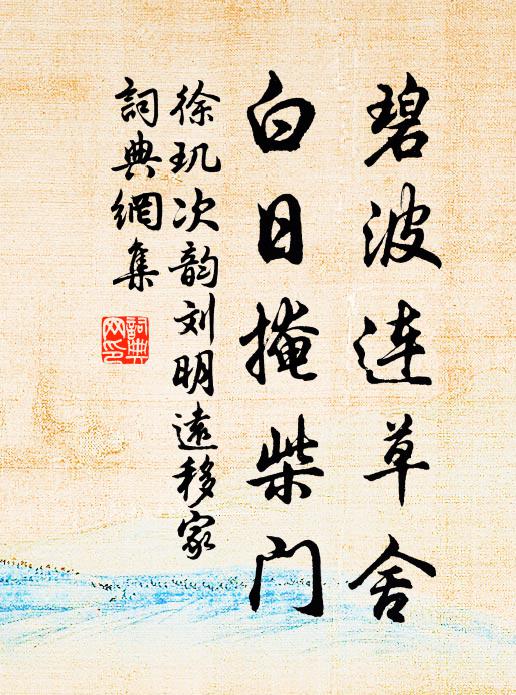 碧波连草舍
白日掩柴门
徐玑次韵刘明远移家
詞典網集
詞典网印